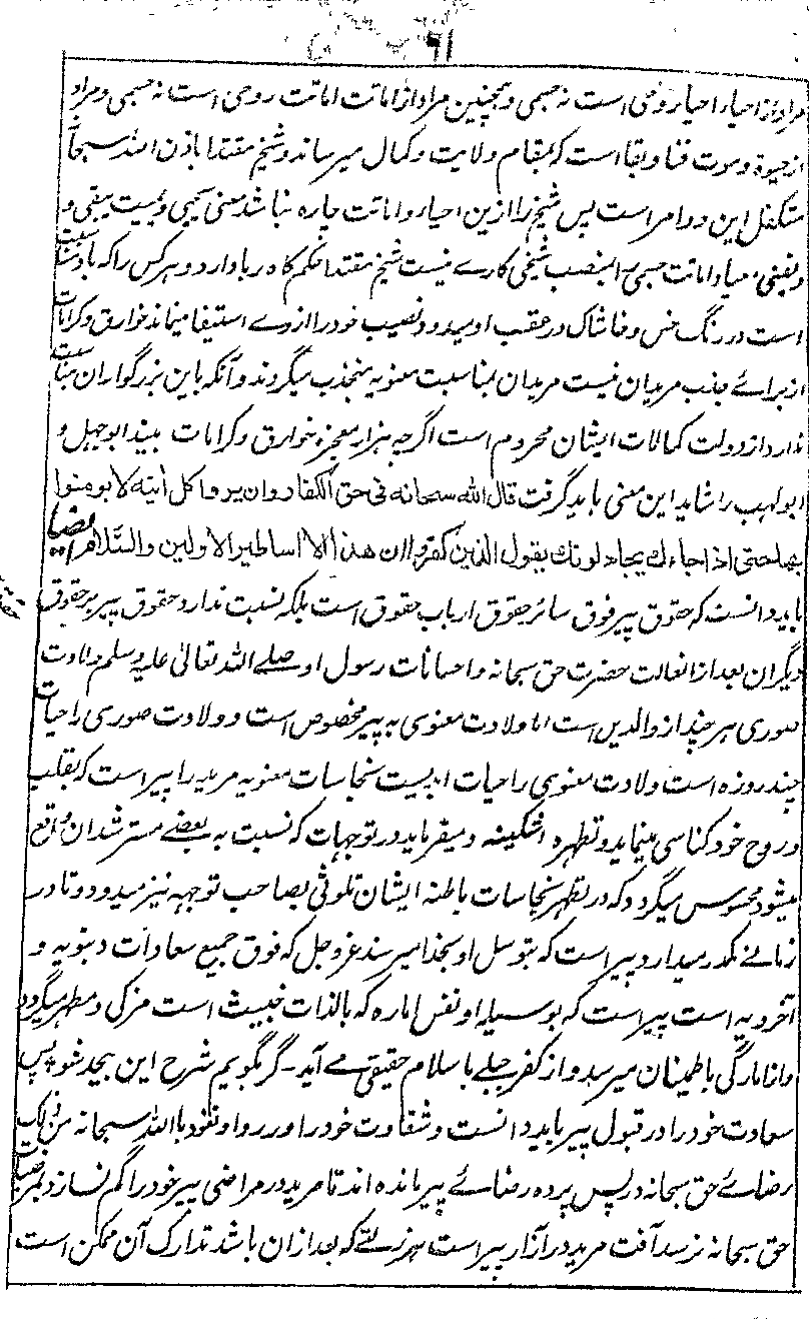 ٦١
مراد از احیاء احیاء روحی است نه جسمی و همچنین مراد از اماتت اماتت روحی است نه جسمی و مراد
از حیوة و موت فنا و بقا است که بمقام ولایت و کمال میرساند و شیخ مقتدا باذن الله سبحانه
متکفل این دو امر است پس شیخ را ازین احیاء و اماتت چاره نباشد معنی یحیی و یمیت یبقی و
و یفنی احیاء و اماتت جسمی را بمنصب شیخی کارے نیست شیخ مقتدا حکم کاه ربا دارد و هر کس را که باو مناسبت
است در رنگ خس و خاشاک در عقب او میدود و نصیب خود را از وے استیفا مینماید خوارق و کرامات
از برائے جذب مریدان نیست مریدان بمناسبت معنویه منجذب میگردند و آنکه باین بزرگواران مناسبت
ندارد از دولت کمالات ایشان محروم است اگرچه هزار معجزه و خوارق و کرامات بیند ابوجهل و
ابولهب را شاهد این معنی باید گرفت قال الله سبحانه فی حق الکفار وان یروا کل اٰیته لا یومنوا
بها حتی اذا جاءوك یجادلونك یقول الذین کفروا ان هذا الا اساطیر الاولین والسّلام ایضا
باید دانست که حقوق پیر فوق سائر حقوق ارباب حقوق است بلکه نسبت ندارد حقوق پیر بر حقوق
دیگران بعد از انعامات حضرت حق سبحانه و احسانات رسول او صلے الله تعالیٰ علیه وسلم ولادت
صوری هر چند از والدین است اما ولادت معنوی به پیر مخصوص است و ولادت صوری را حیات
چند روزه است ولادت معنوی را حیات ابدیست نجاسات معنویه مرید را پیر است که بقلب
و روح خود کناسی مینماید و تطهره اشکینه و میفرماید در توجهات که نسبت به بعضے مسترشدان واقع
میشود محسوس میگردد که در تطهیر نجاسات باطنه ایشان تلوثی بصاحب توجهه نیز میدود و تا در
زمانے مکدر میدارد پیر است که بتوسل او بخدا میرسند عز و جل که فوق جمیع سعادات دنیویه و
آخرویه است پیر است که بوسیله او نفس اماره که بالذات خبیث است مزکی و مطهر میگردد
و از امارگی باطمینان میرسد و از کفر جبلے باسلام حقیقی مے آید - گر بگویم شرح این بیحد شود پس
سعادت خود را در قبول پیر باید دانست و شقاوت خود را در رد او نعوذ باالله سبحانه من ذلک
رضائے حق سبحانه در پس پرده رضائے پیر مانده اند تا مرید در مراضی پیر خود را گم نسازد بمرضیات
حق سبحانه نرسد آفت مرید در آزار پیر است هر زلتے که بعد ازان باشد تدارک آن ممکن است